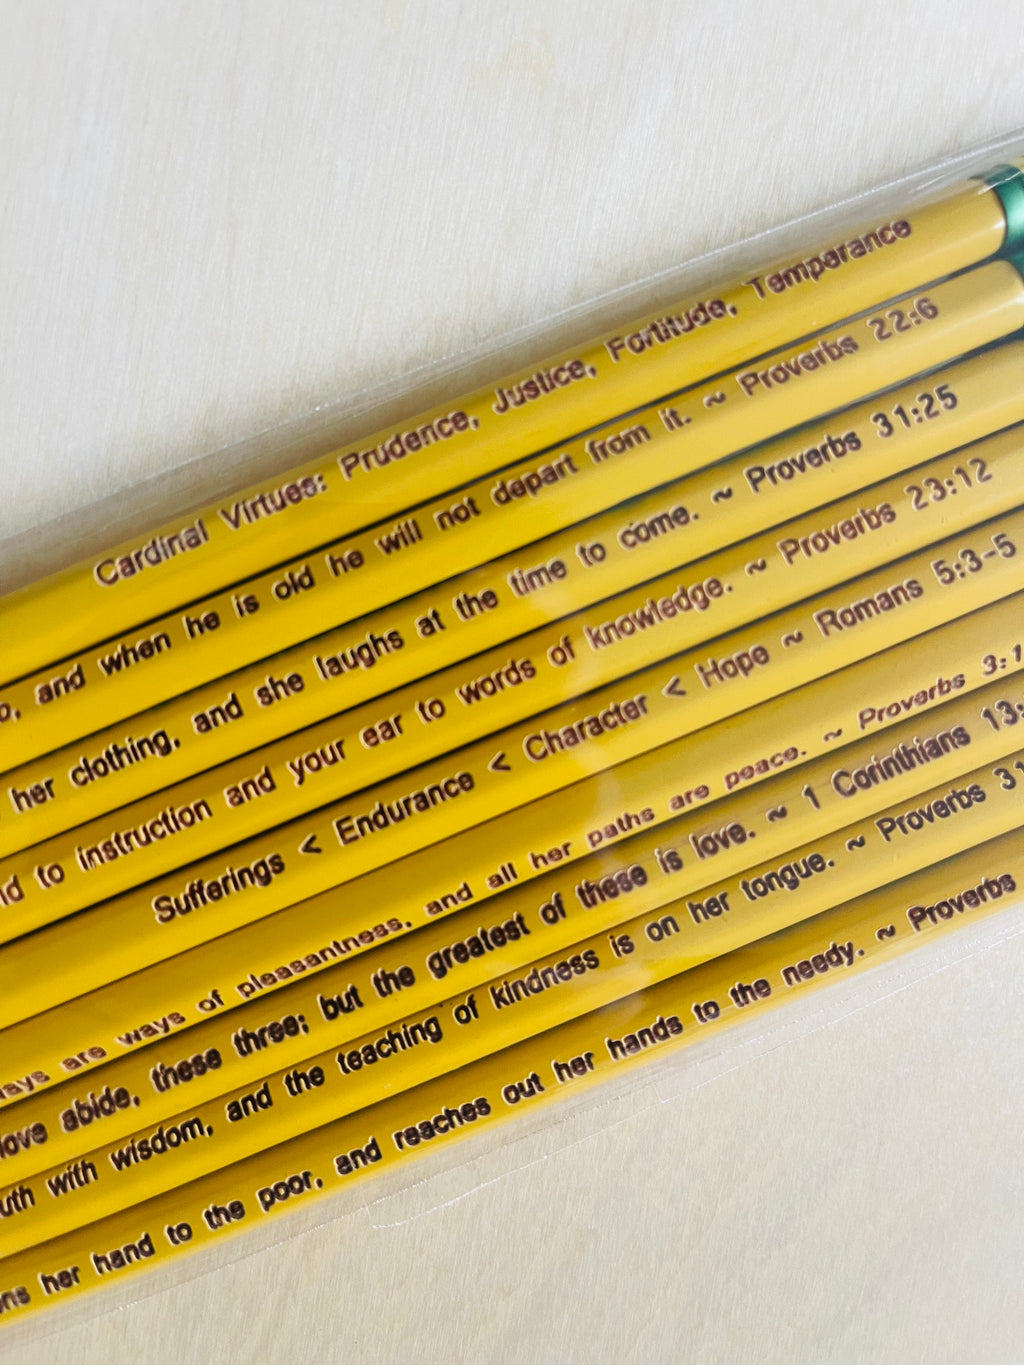 Cardinal Virtues: Prudence, Justice, Fortitude, Temperance
and when he is old he will not depart from it. ~ Proverbs 22:6
her clothing, and she laughs at the time to come. ~ Proverbs 31:25
to instruction and your ear to words of knowledge. ~ Proverbs 23:12
Sufferings < Endurance < Character < Hope ~ Romans 5:3-5
are ways of pleasantness, and all her paths are peace. ~ Proverbs 3:1
love abide, these three; but the greatest of these is love. ~ 1 Corinthians 13:
with wisdom, and the teaching of kindness is on her tongue. ~ Proverbs 31
her hand to the poor, and reaches out her hands to the needy. ~ Proverbs